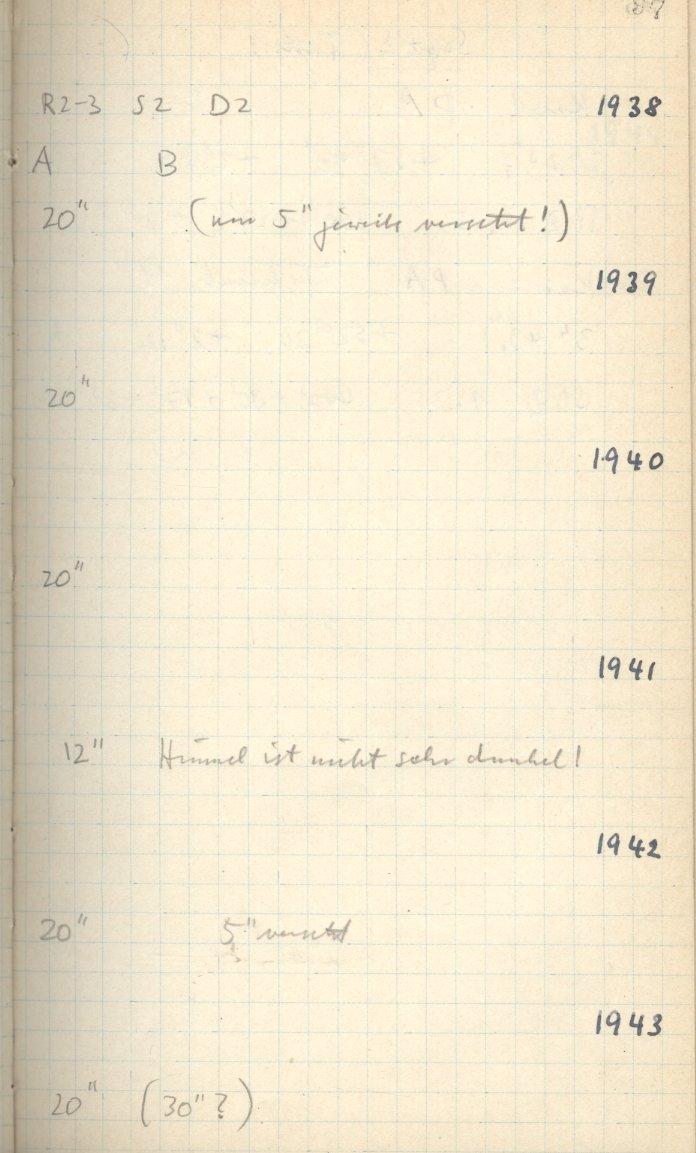 87
R2-3 S2 D2 1938
A B
20" (um 5" jeweils versetzt!)
1939
20"
1940
20"
1941
12" Himmel ist nicht sehr dunkel!
1942
20" 5" versetzt
1943
20" (30"?)